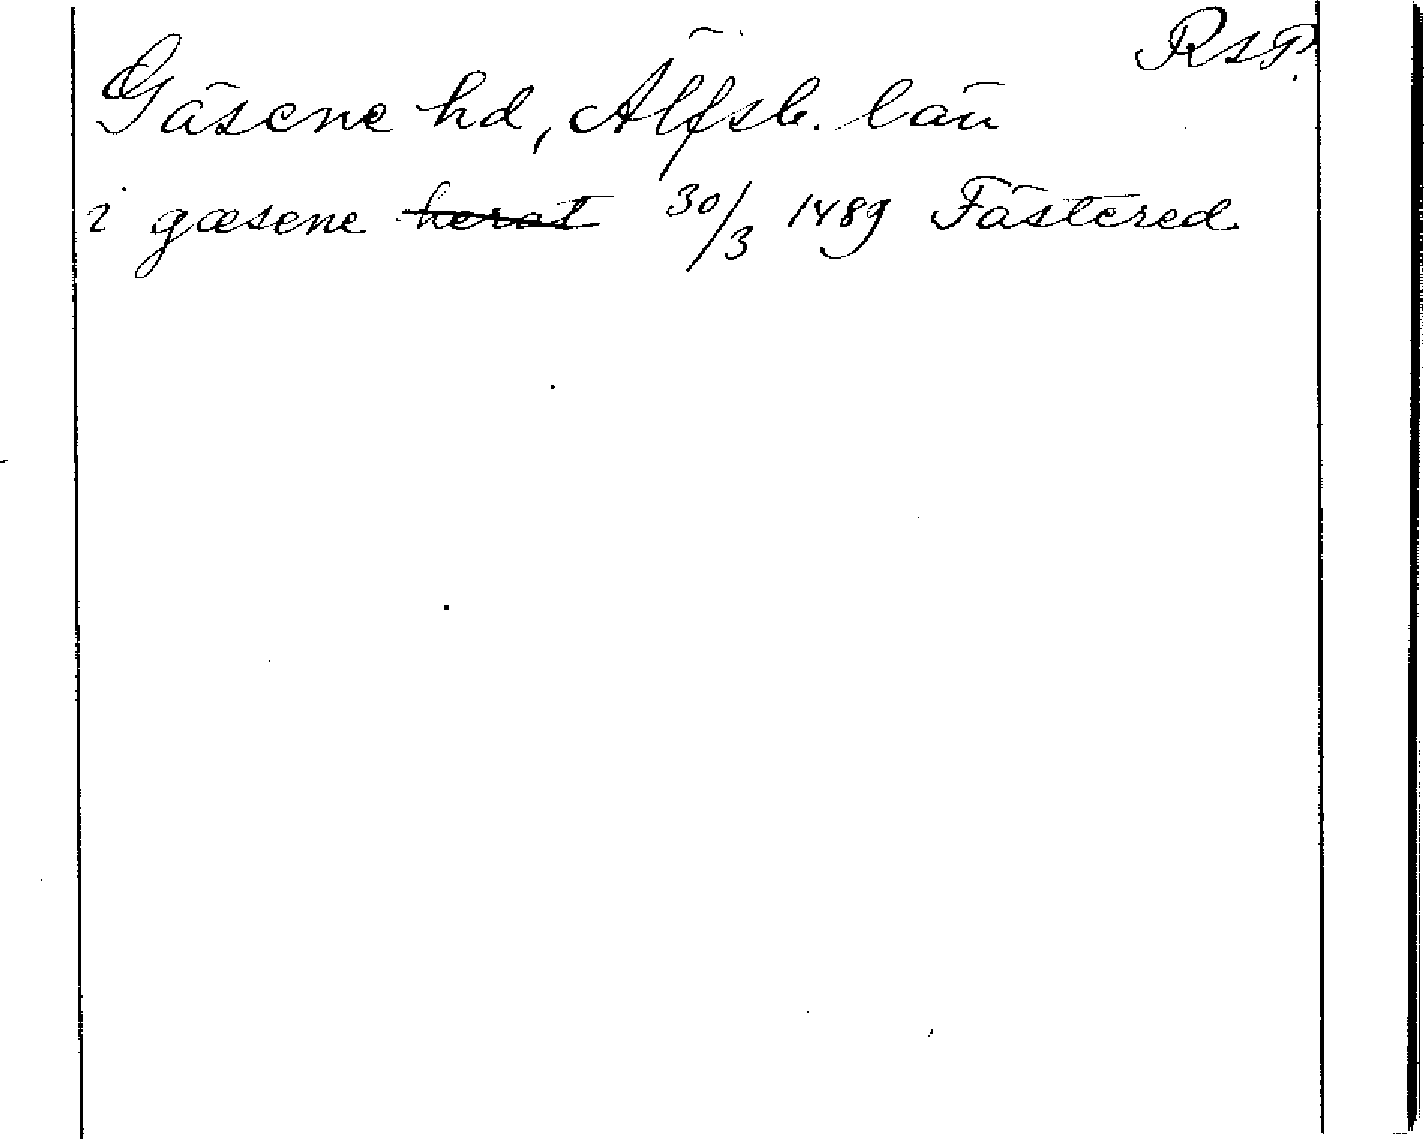 RAP.
Gäsene hd, Älfsb. län
i gæsene herat 30/3 1489 Fästered